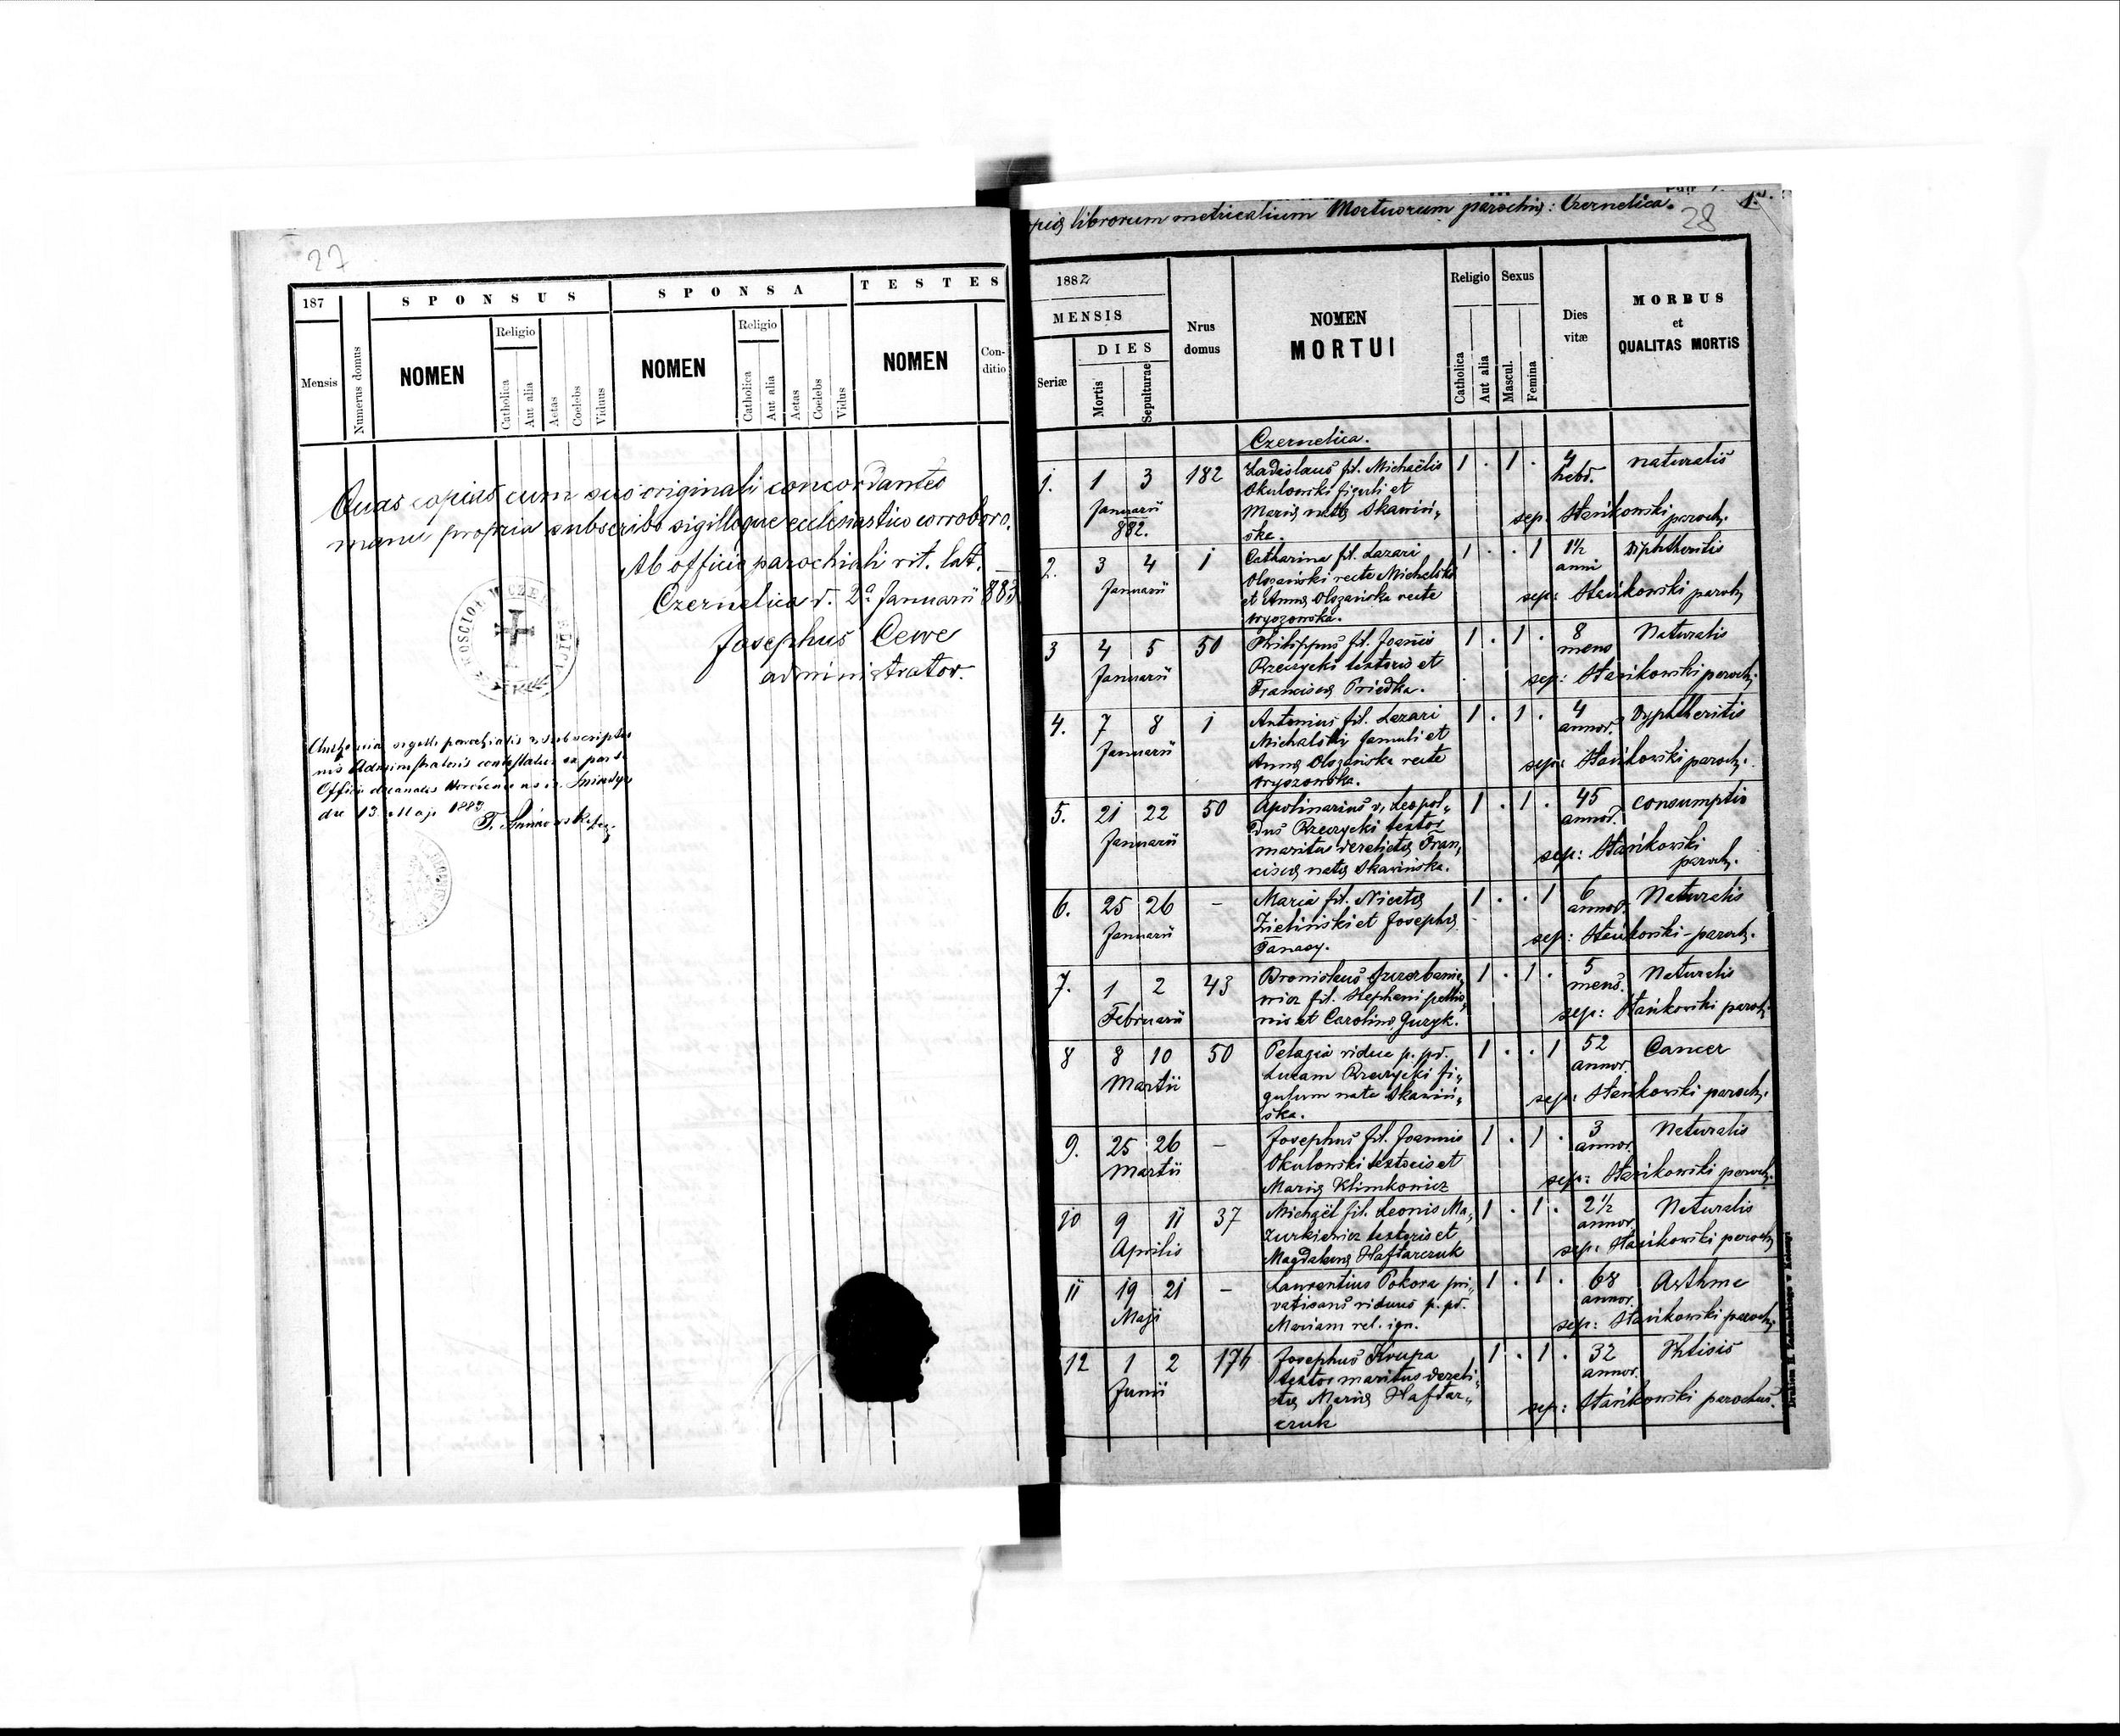 27
187
SPONSUS
SPONSA
TESTES
Mensis
Numerus domus
NOMEN
Religio
Catholica
Aut alia
Aetas
Coelebs
Viduus
NOMEN
Religio
Catholica
Aut alia
Aetas
Coelebs
Vidus
NOMEN
Con-
ditio
Quas copias cum suo originali concordantes
manu propria subscribo sigilloque ecclesiastico corroboro.
Ab officio parochiali rit. lat.
Czernelica d. 2a Januarii 883
Josephus Cewe
administrator.
sigilli parochialis subscriptio
nis Administratoris contestatur ex parte
Officii decanalis
die 13 Maji 1883
librorum metricalium Mortuorum parochię: Czernelica.
28
1.
1882
MENSIS
Seriæ
DIES
Mortis
Sepulturae
Nrus
domus
NOMEN
MORTUI
Religio
Catholica
Aut alia
Sexus
Mascul.
Femina
Dies
vitæ
MORBUS
et
QUALITAS MORTiS
Czernelica.
1. 1 3 182 Ladislaus fil. Michaëlis 1 . 1 . 4 naturalis
Okulowski figuli et hebd.
Januarii Marię natę Skawiń„ sep. Stańkowski paroch.
882. ska.
2. 3 4 1 Catharina fil. Lazari 1 . . 1 1½ Diphtheritis
Olszański recte Michalski anni
Januarii et Annę Olszańska recte sep: Stańkowski paroch.
Wryszowska.
3 4 5 50 Philippus fil. Joannis 1 . 1 . 8 Naturalis
Rzeczycki textoris et mens
Januarii Franciscę Priedka. sep: Stańkowski paroch.
4. 7 8 1 Antonius fil. Lazari 1 . 1 . 4 Dyphtheritis
Michalski famuli et annor.
Januarii Annę Olszańska recte sep: Stańkowski paroch.
Wryszowska.
5. 21 22 50 Apolinarius v. Leopol„ 1 . 1 . 45 consumptio
dus Rzeczycki textor annor.
Januarii maritus derelictę Fran„ sep: Stańkowski
ciscę natę Skawińska. paroch.
6. 25 26 - Maria fil. Nicetę 1 . . 1 6 Naturalis
Zieliński et Josephę annor.
Januarii Panasy. sep: Stańkowski paroch.
7. 1 2 43 Bronislaus 1 . 1 . 5 Naturalis
wicz fil. Stephani pellio„ mens.
Februarii nis et Carolinę Guzyk. sep: Stańkowski paroch.
8 8 10 50 Pelagia vidua p. pd. 1 . . 1 52 Cancer
Lucam Rzeczycki fi„ annor.
Martii gulum nata Skawiń„ sep: Stańkowski paroch.
ska.
9. 25 26 - Josephus fil. Joannis 1 . 1 . 3 Naturalis
Okulowski textoris et annor.
Martii Marię Klimkowicz sep: Stańkowski paroch.
10 9 11 37 Michaël fil. Leonis Ma„ 1 . 1 . 2½ Naturalis
zurkiewicz textoris et annor.
Aprilis Magdalenę Haftarczuk sep: Stańkowski paroch.
11 19 21 - Laurentius Pokora pri„ 1 . 1 . 68 Asthma
vatisans viduus p. pd. annor.
Maji Mariam rel. ign. sep: Stańkowski paroch.
12 1 2 174 Josephus Krupa 1 . 1 . 32 Phtisis
textor maritus dereli„ annor.
Junii ctę Marię Haftar„ sep: Stańkowski parochus.
czuk